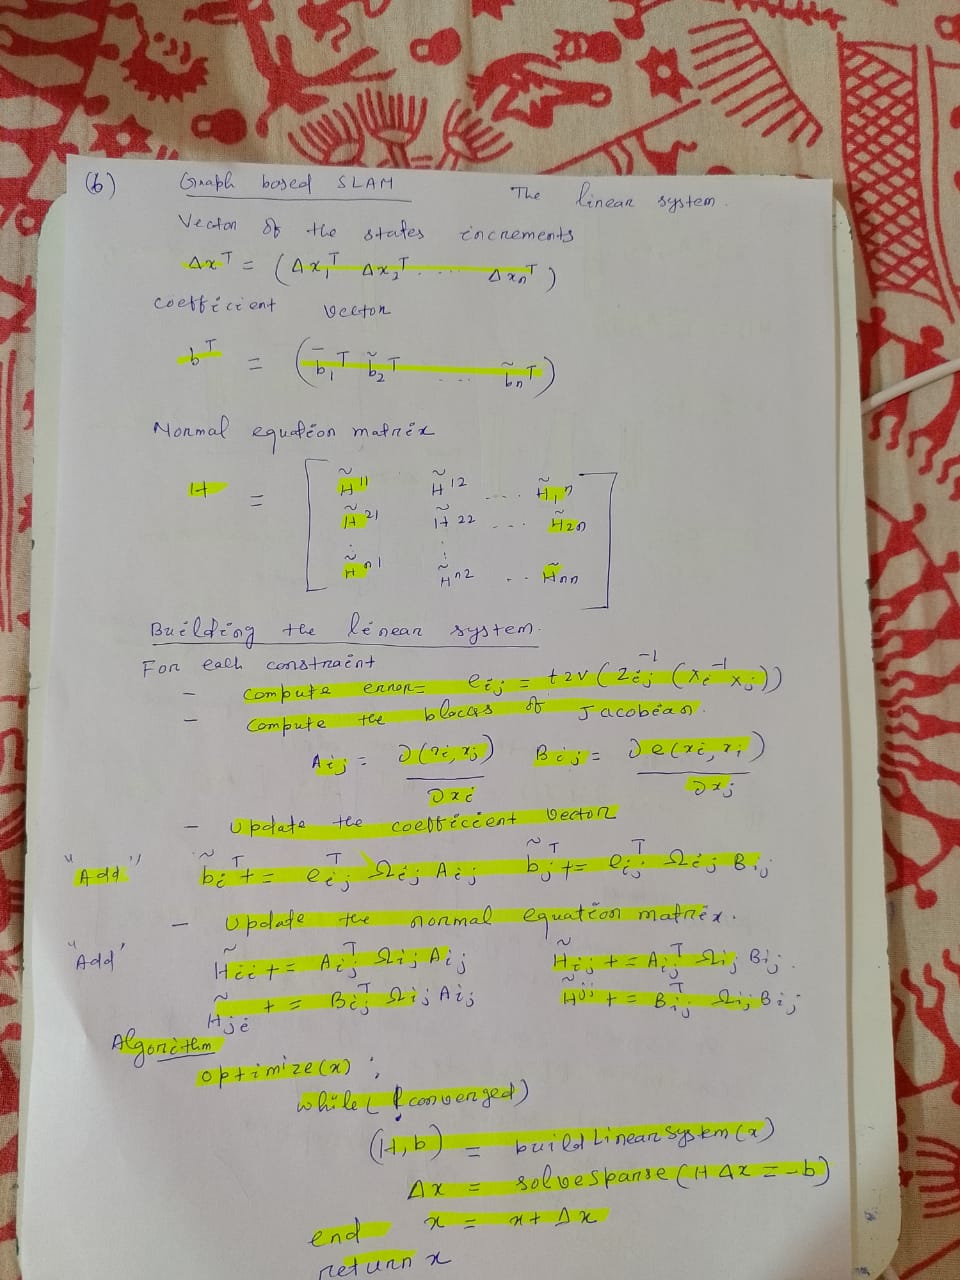 (b) Graph based SLAM The linear system.
Vector of the states increments
Δxᵀ = (Δx₁ᵀ Δx₂ᵀ .... Δxₙᵀ)
coefficient vector
bᵀ = (b̄₁ᵀ b̃₂ᵀ .... b̃ₙᵀ)
Normal equation matrix
H = [ H̃¹¹ H̃¹² .... H̃₁ₙ
H̃²¹ H̃²² ... H̃₂ₙ
⋮ ⋮
H̃ⁿ¹ H̃ⁿ² .. H̃ₙₙ ]
Building the linear system.
For each constraint
– compute error = eᵢⱼ = t2v(Zᵢⱼ⁻¹ (xᵢ⁻¹ xⱼ))
– compute the blocks of Jacobian.
Aᵢⱼ = ∂(xᵢ, xⱼ) / ∂xᵢ Bᵢⱼ = ∂e(xᵢ, xⱼ) / ∂xⱼ
– Update the coefficient vector
"Add" b̃ᵢᵀ += eᵢⱼᵀ Ωᵢⱼ Aᵢⱼ b̃ⱼᵀ += eᵢⱼᵀ Ωᵢⱼ Bᵢⱼ
– Update the normal equation matrix.
"Add" H̃ᵢᵢ += Aᵢⱼᵀ Ωᵢⱼ Aᵢⱼ H̃ᵢⱼ += Aᵢⱼᵀ Ωᵢⱼ Bᵢⱼ.
H̃ⱼᵢ += Bᵢⱼᵀ Ωᵢⱼ Aᵢⱼ H̃ʲʲ += Bᵢⱼᵀ Ωᵢⱼ Bᵢⱼ
Algorithm
optimize(x) ;
while (!converged)
(H,b) = buildLinearSystem(x)
Δx = solveSparse(HΔx = -b)
x = x + Δx
end
return x